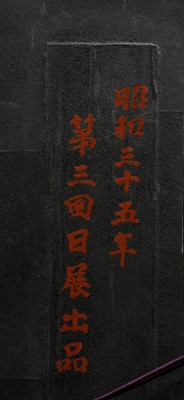 昭和三十五年
第三回日展出品